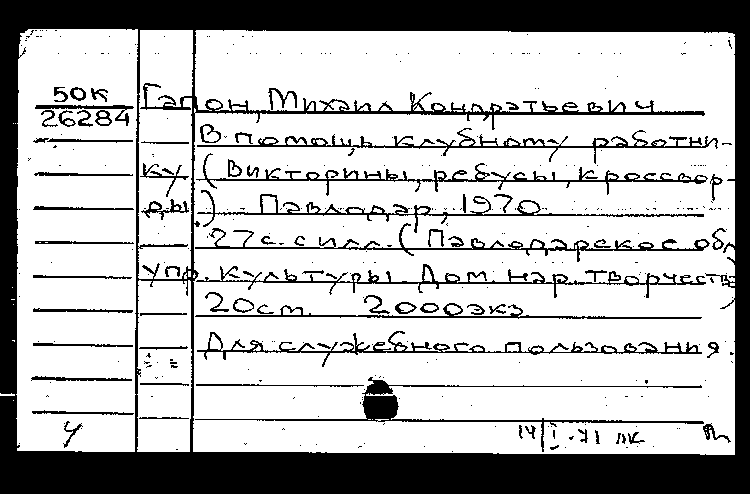 50К
26284
Гапон, Михаил Кондратьевич
В помощь клубному работни-
ку (Викторины, ребусы, кроссвор-
ды) - Павлодар, 1970
27с. с илл. (Павлодарское обл
упр. культуры. Дом. нар. творчества)
20см. 2000экз
Для служебного пользования.
У
14/I-71 ЛК